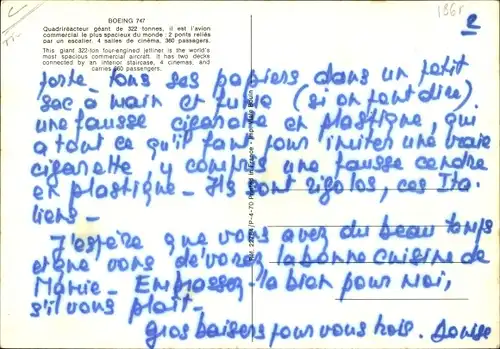 BOEING 747
Quadriréacteur géant de 322 tonnes, il est l'avion
commercial le plus spacieux du monde : 2 ponts reliés
par un escalier, 4 salles de cinéma, 360 passagers.
This giant 322-ton four-engined jetliner is the world's
most spacious commercial aircraft. It has two decks
connected by an interior staircase, 4 cinemas, and
carries 360 passengers.
2
porte tous ses papiers dans un petit
sac à main et fume (si on peut dire)
une fausse cigarette en plastique, qui
a tout ce qu'il faut pour imiter une vraie
cigarette y compris une fausse cendre
en plastique - Ils sont rigolos, ces Ita-
liens -
J'espère que vous avez du beau temps
et que vous dévorez la bonne cuisine de
Mamie - Embrassez-la bien pour moi,
s'il vous plaît -
Gros baisers pour vous trois. Louise